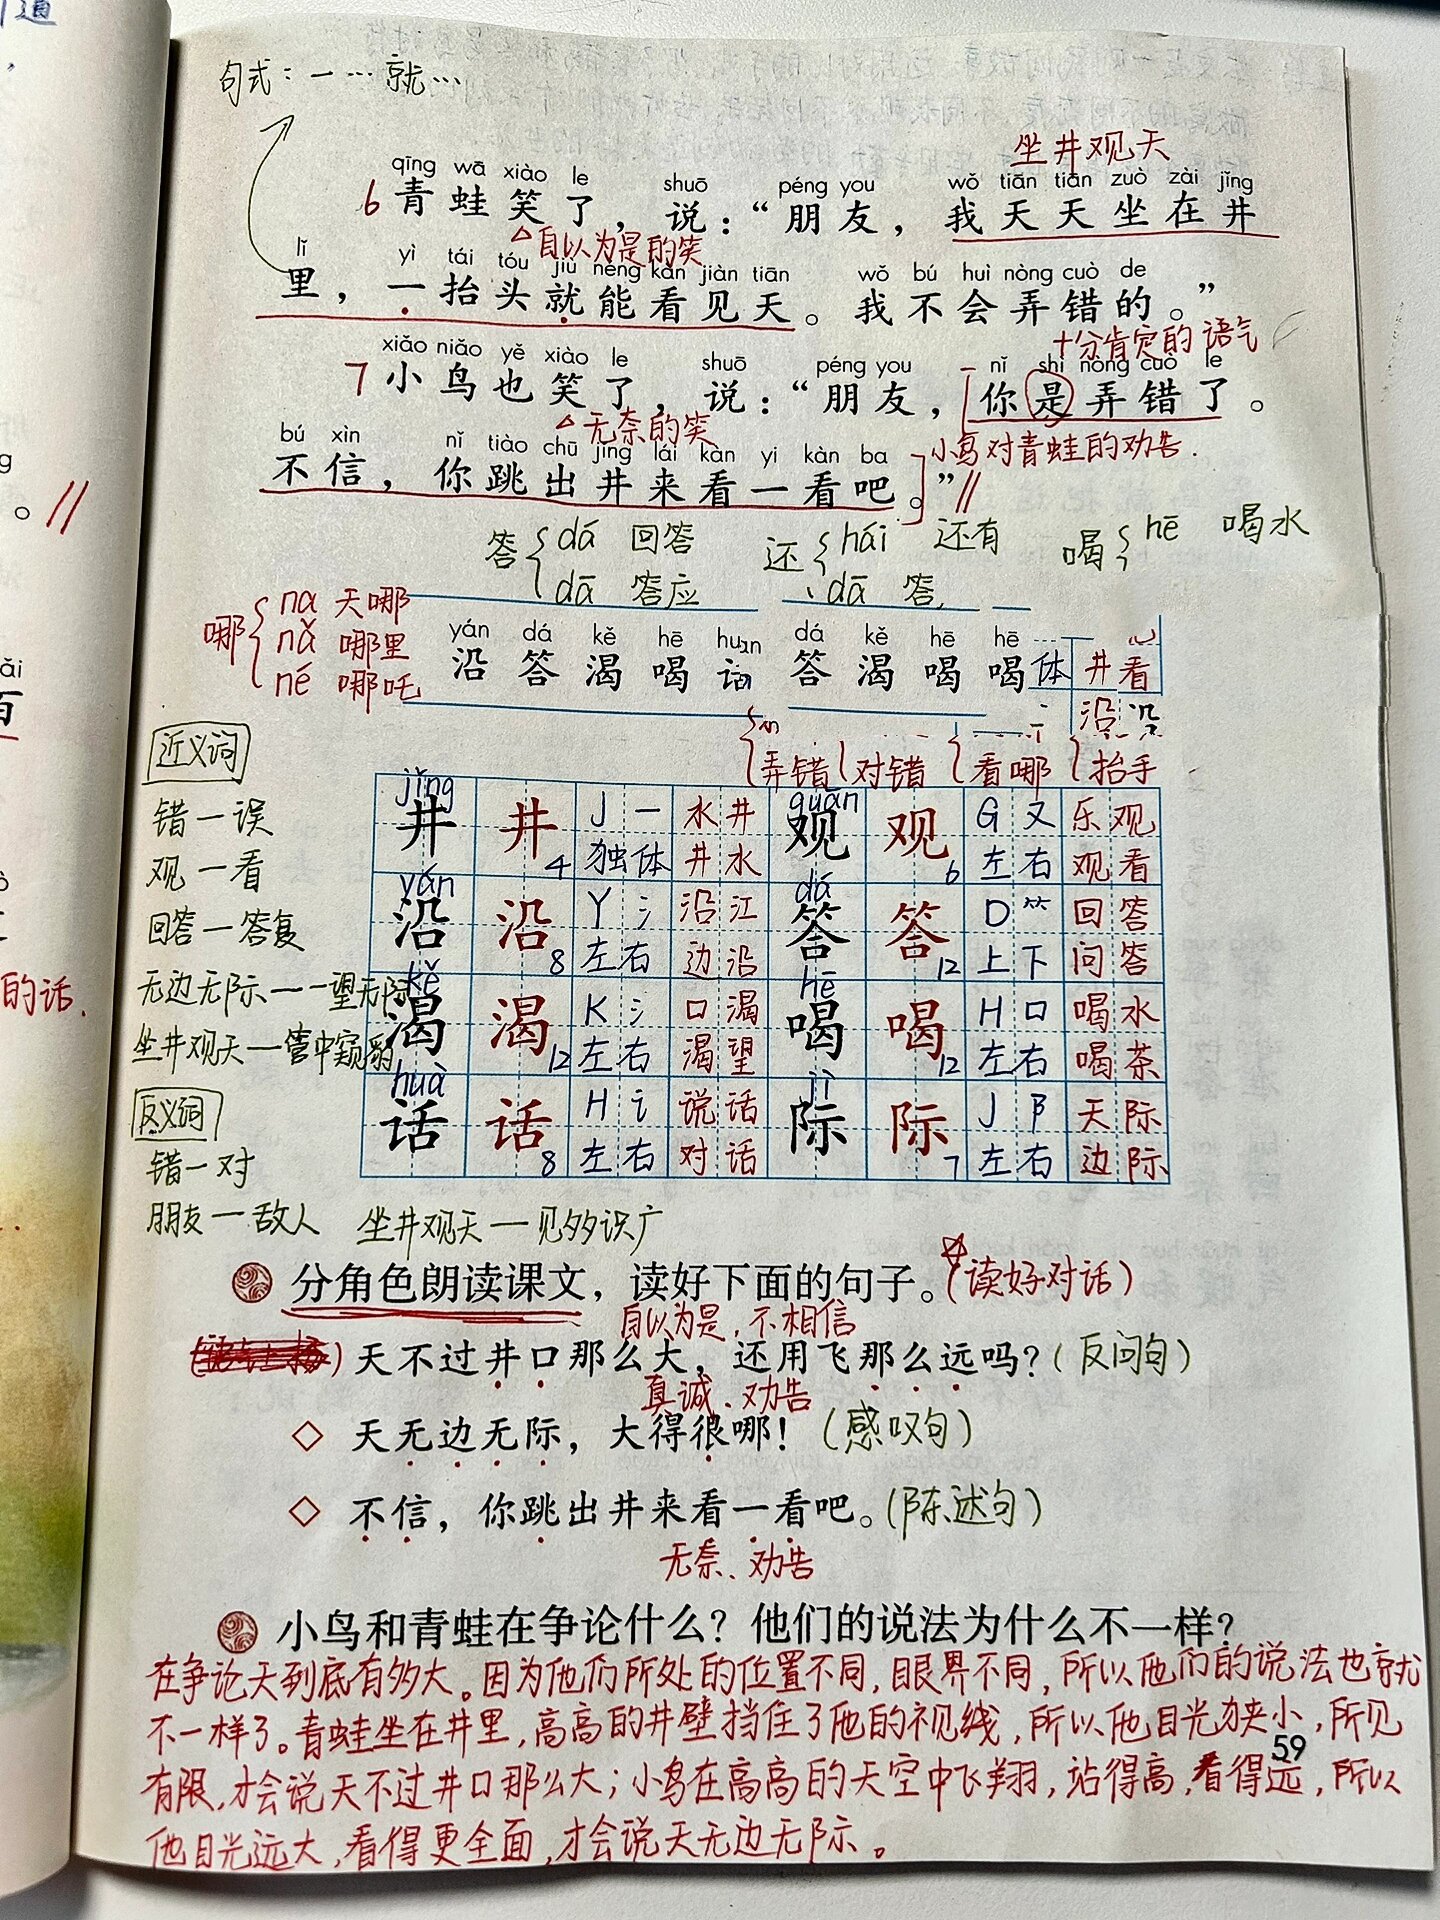 句式：一…就…
坐井观天
qīng wā xiào le shuō péng you wǒ tiān tiān zuò zài jǐng
6 青蛙笑了，说：“朋友，我天天坐在井
自以为是的笑
lǐ yì tái tóu jiù néng kàn jiàn tiān wǒ bú huì nòng cuò de
里，一抬头就能看见天。我不会弄错的。”
十分肯定的语气
xiǎo niǎo yě xiào le shuō péng you nǐ shì nòng cuò le
7 小鸟也笑了，说：“朋友，你是弄错了。
无奈的笑
小鸟对青蛙的劝告.
bú xìn nǐ tiào chū jǐng lái kàn yi kàn ba
不信，你跳出井来看一看吧。”
答 dá 回答 还 hái 还有 喝 hē 喝水
dā 答应 dā 答
哪 na 天哪
nǎ 哪里
né 哪吒
yán dá kě hē dá kě hē hē
沿 答 渴 喝 答 渴 喝 喝 体 井 看
沿
弄错 对错 看哪 抬手
近义词
错—误
观—看
回答—答复
无边无际—一望无际
坐井观天—管中窥豹
反义词
错—对
朋友—敌人 坐井观天—见多识广
jǐng guān
井 井 4 J 一 水井 观 观 6 G 又 乐观
独体 井水 左右 观看
yán dá
沿 沿 8 Y 氵 沿江 答 答 12 D ⺮ 回答
左右 边沿 上下 问答
kě hē
渴 渴 12 K 氵 口渴 喝 喝 12 H 口 喝水
左右 渴望 左右 喝茶
huà jì
话 话 8 H 讠 说话 际 际 7 J 阝 天际
左右 对话 左右 边际
分角色朗读课文，读好下面的句子。（读好对话）
自以为是，不相信
天不过井口那么大，还用飞那么远吗？（反问句）
真诚、劝告
◇ 天无边无际，大得很哪！（感叹句）
◇ 不信，你跳出井来看一看吧。（陈述句）
无奈、劝告
小鸟和青蛙在争论什么？他们的说法为什么不一样？
在争论天到底有多大。因为他们所处的位置不同，眼界不同，所以他们的说法也就
不一样了。青蛙坐在井里，高高的井壁挡住了他的视线，所以他目光狭小，所见
59
有限，才会说天不过井口那么大；小鸟在高高的天空中飞翔，站得高，看得远，所以
他目光远大，看得更全面，才会说天无边无际。
的话.